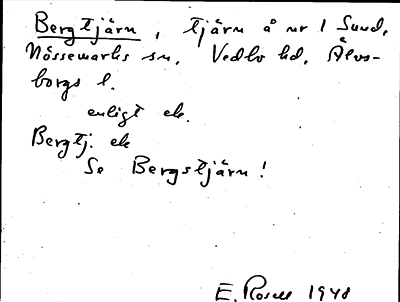 Bergtjärn, tjärn å nr 1 Sund,
Nössemarks sn, Vedbo hd, Älvs-
borgs l.
enligt ek.
Bergtj. ek
Se Bergstjärn!
E. Rosell 1948